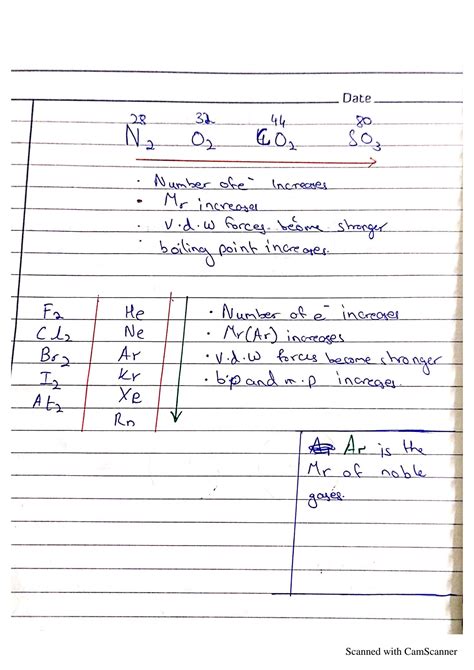 Date
28 32 44 80
N₂ O₂ CO₂ SO₃
· Number of e⁻ Increases
· Mr increases
· v.d.w forces become stronger
· boiling point increases.
F₂ He · Number of e⁻ increases
Cl₂ Ne · Mr(Ar) increases
Br₂ Ar · v.d.w forces become stronger
I₂ Kr · b.p and m.p increases.
At₂ Xe
Rn
Ar is the
Mr of noble
gases.
Scanned with CamScanner